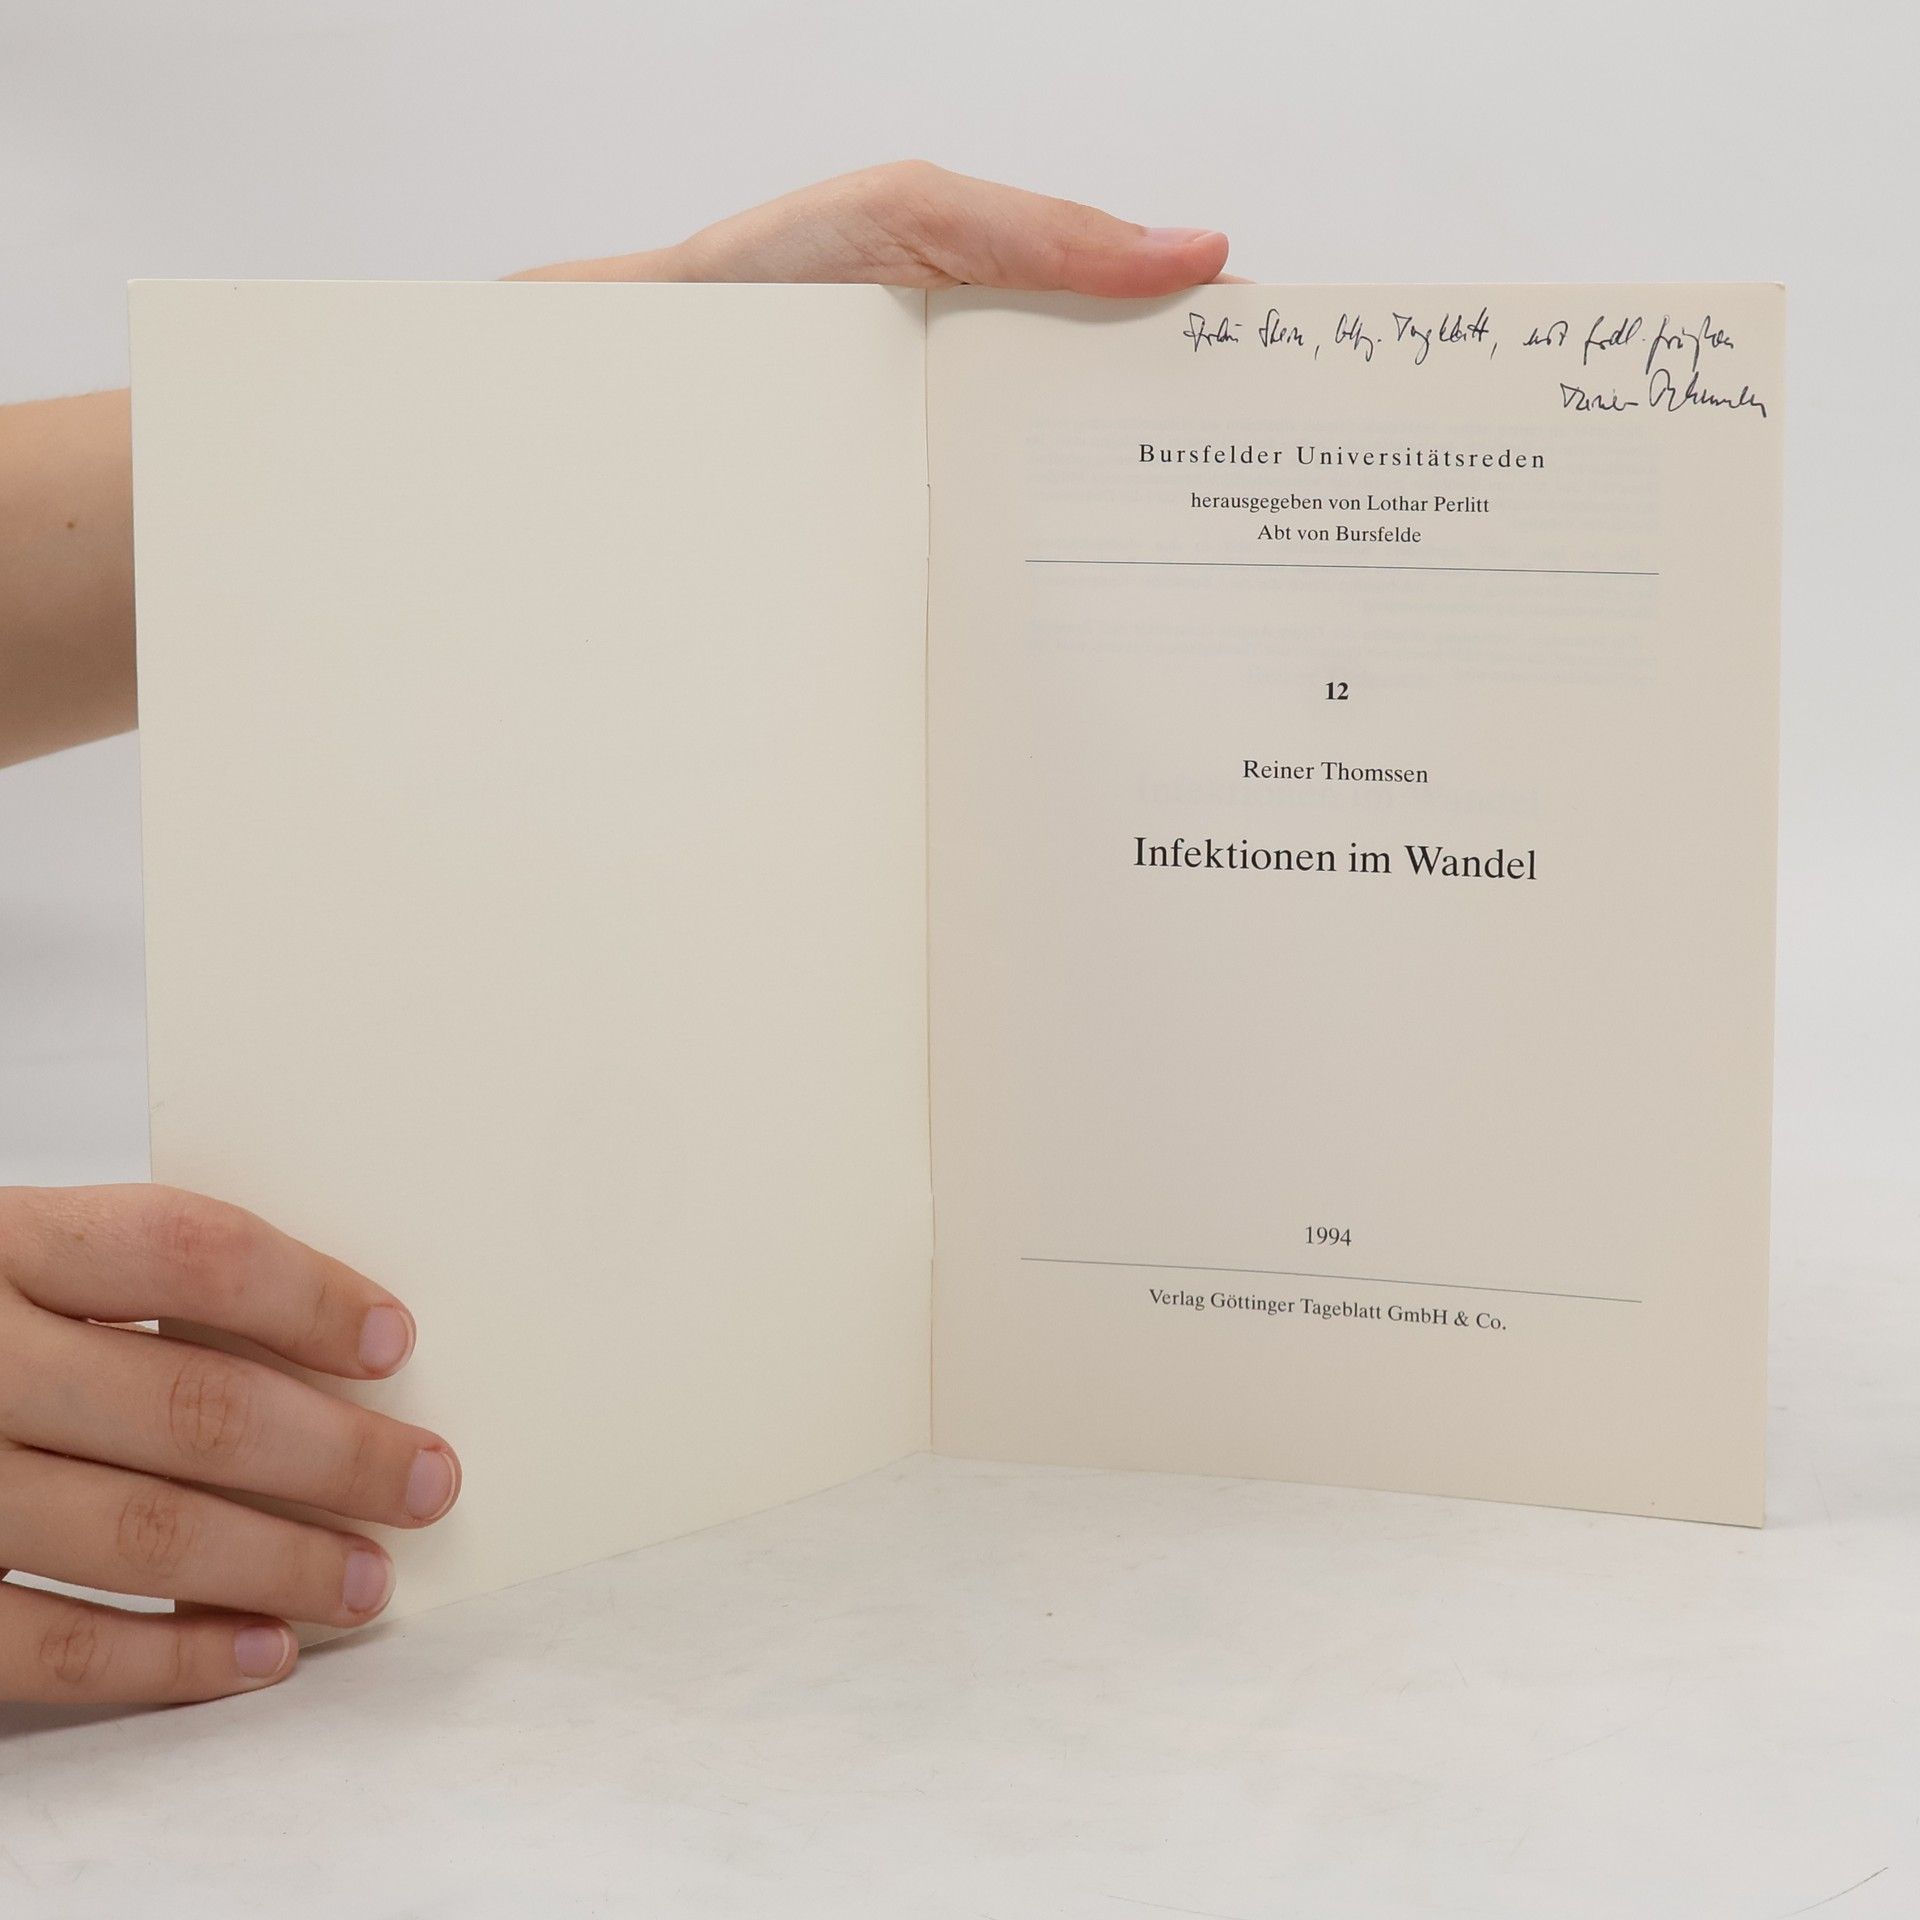 Stein, Tageblatt, mit frdl. Grüßen
Reiner Thomssen
Bursfelder Universitätsreden
herausgegeben von Lothar Perlitt
Abt von Bursfelde
12
Reiner Thomssen
Infektionen im Wandel
1994
Verlag Göttinger Tageblatt GmbH & Co.